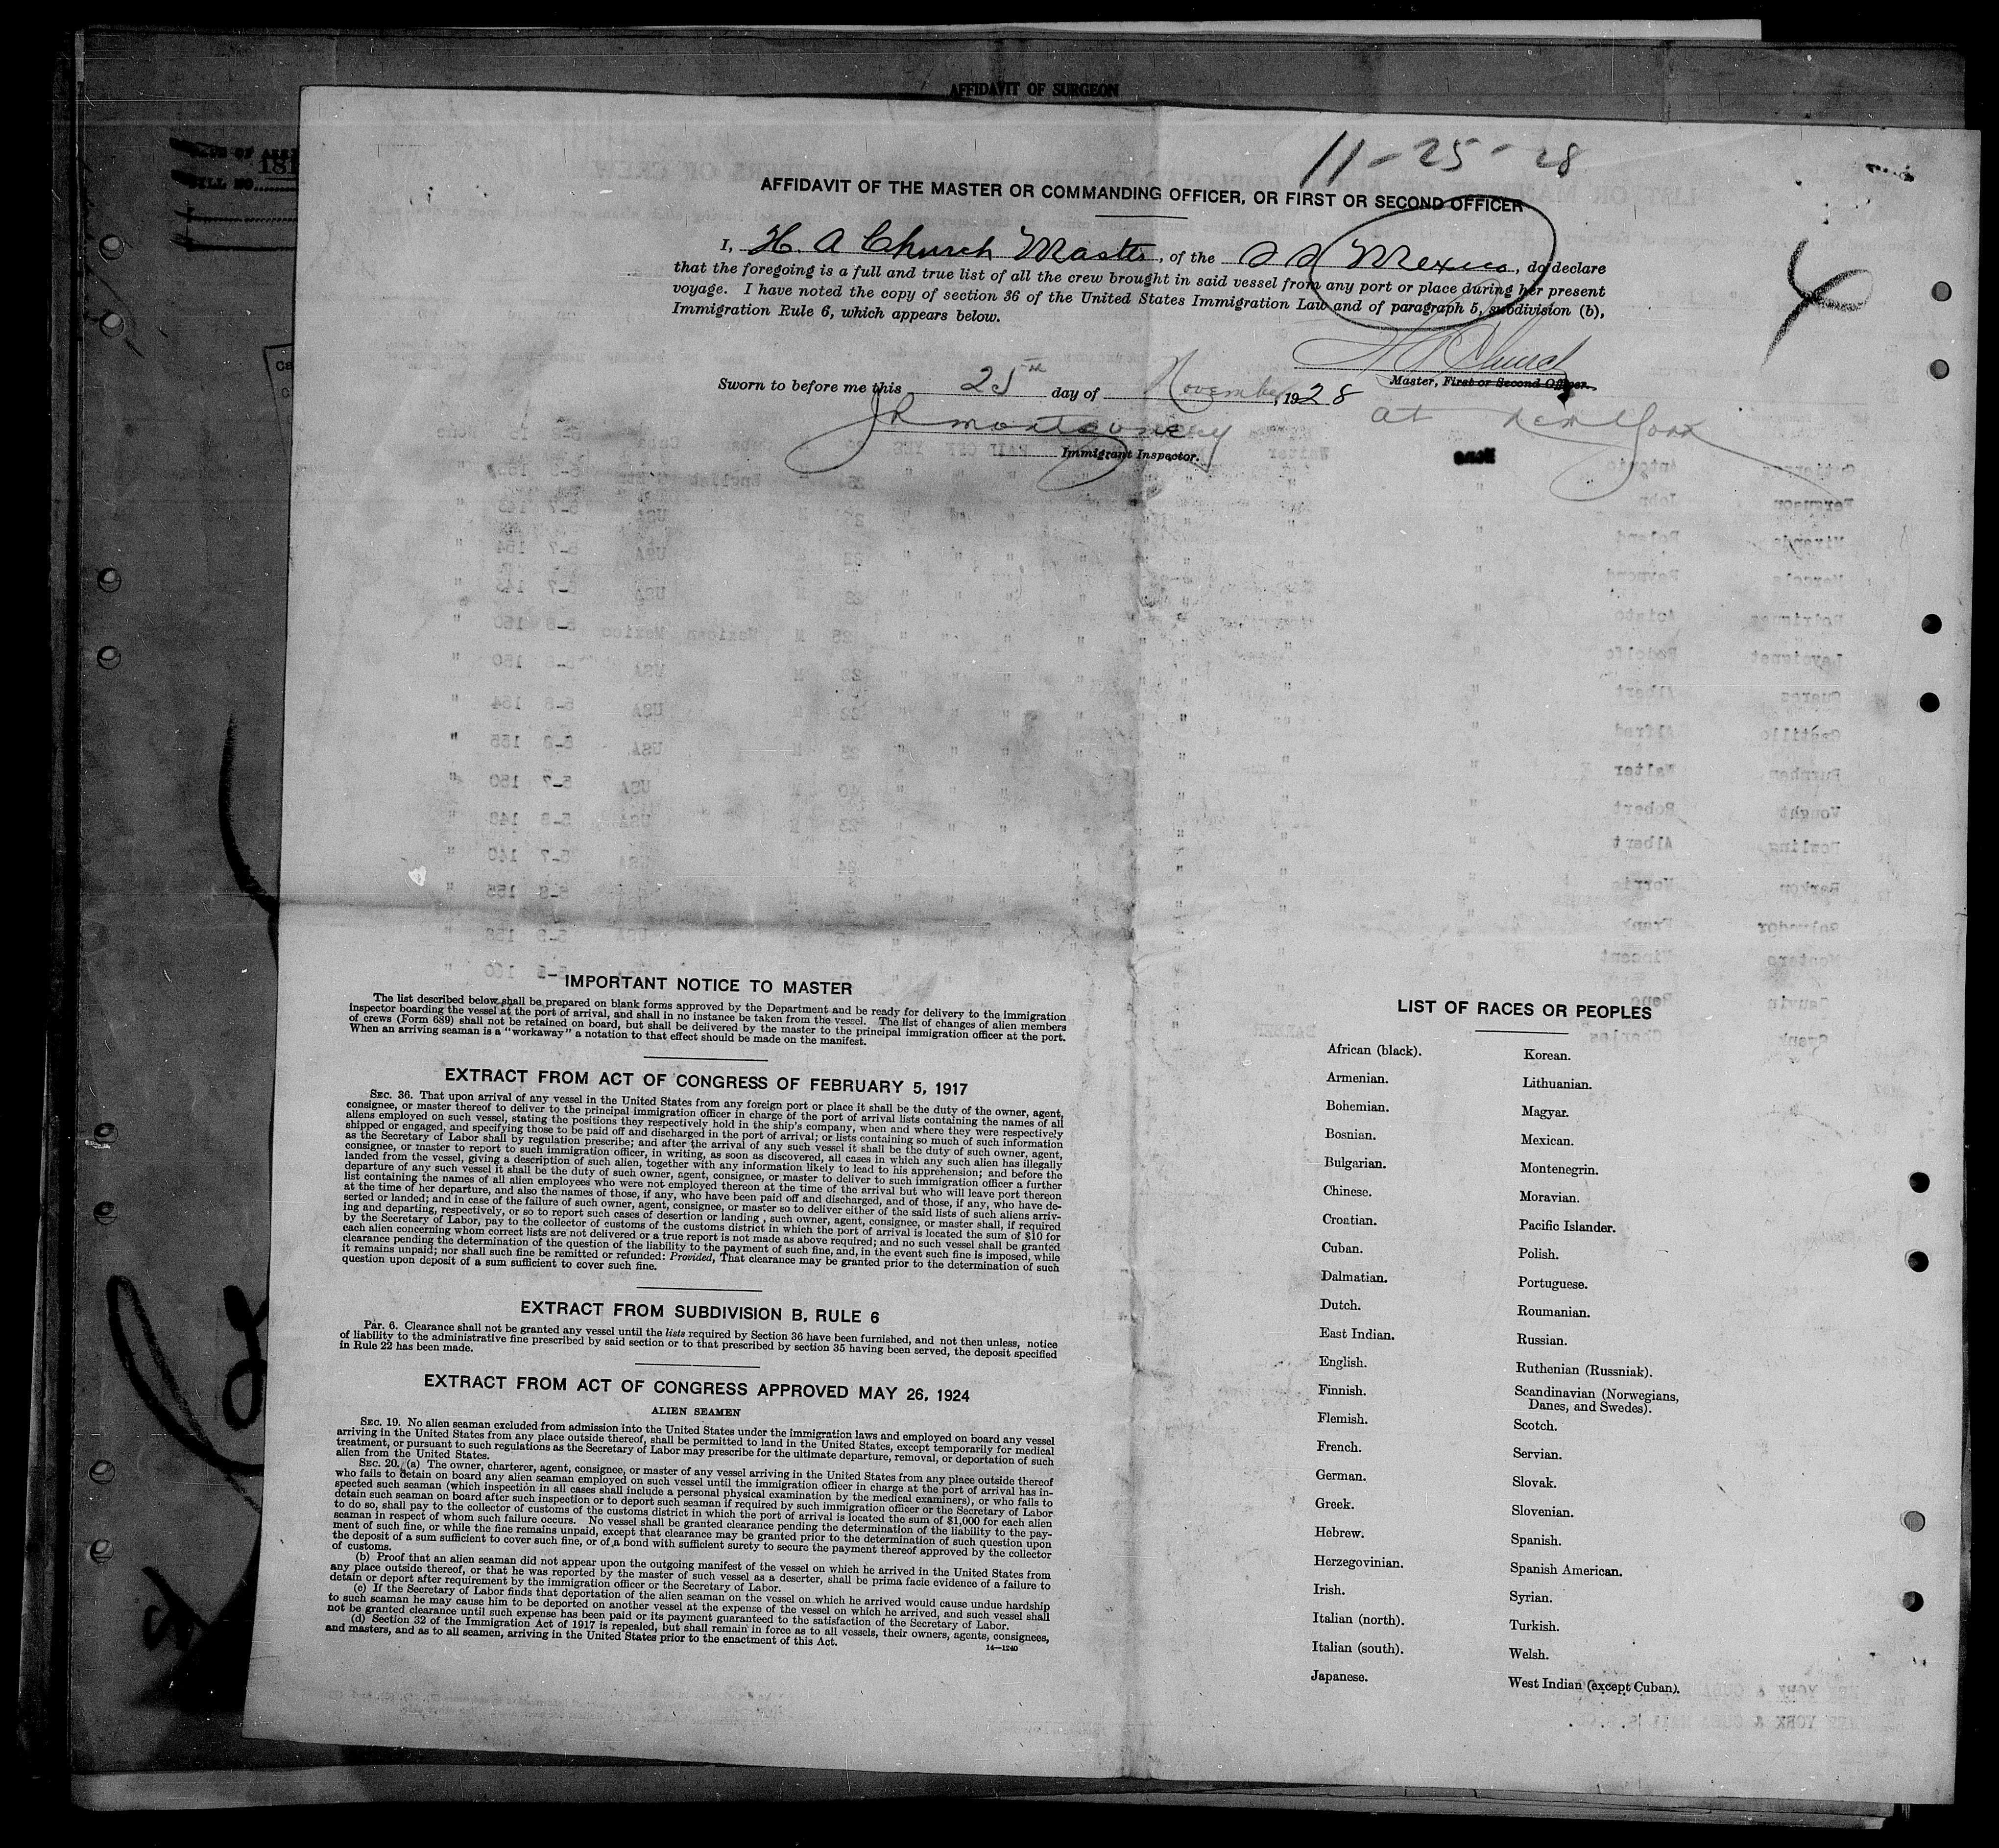 AFFIDAVIT OF SURGEON
181
11-25-28
AFFIDAVIT OF THE MASTER OR COMMANDING OFFICER, OR FIRST OR SECOND OFFICER
I, H. A Church Master, of the SS Mexico, do declare
that the foregoing is a full and true list of all the crew brought in said vessel from any port or place during her present
voyage. I have noted the copy of section 36 of the United States Immigration Law and of paragraph 5, subdivision (b),
Immigration Rule 6, which appears below.
H A Church
Master, First or Second Officer.
Sworn to before me this 25th day of November, 1928
at New York
JR Montgomery
Immigrant Inspector.
IMPORTANT NOTICE TO MASTER
The list described below shall be prepared on blank forms approved by the Department and be ready for delivery to the immigration
inspector boarding the vessel at the port of arrival, and shall in no instance be taken from the vessel. The list of changes of alien members
of crews (Form 689) shall not be retained on board, but shall be delivered by the master to the principal immigration officer at the port.
When an arriving seaman is a "workaway" a notation to that effect should be made on the manifest.
EXTRACT FROM ACT OF CONGRESS OF FEBRUARY 5, 1917
SEC. 36. That upon arrival of any vessel in the United States from any foreign port or place it shall be the duty of the owner, agent,
consignee, or master thereof to deliver to the principal immigration officer in charge of the port of arrival lists containing the names of all
aliens employed on such vessel, stating the positions they respectively hold in the ship's company, when and where they were respectively
shipped or engaged, and specifying those to be paid off and discharged in the port of arrival; or lists containing so much of such information
as the Secretary of Labor shall by regulation prescribe; and after the arrival of any such vessel it shall be the duty of such owner, agent,
consignee, or master to report to such immigration officer, in writing, as soon as discovered, all cases in which any such alien has illegally
landed from the vessel, giving a description of such alien, together with any information likely to lead to his apprehension; and before the
departure of any such vessel it shall be the duty of such owner, agent, consignee, or master to deliver to such immigration officer a further
list containing the names of all alien employees who were not employed thereon at the time of the arrival but who will leave port thereon
at the time of her departure, and also the names of those, if any, who have been paid off and discharged, and of those, if any, who have de-
serted or landed; and in case of the failure of such owner, agent, consignee, or master so to deliver either of the said lists of such aliens arriv-
ing and departing, respectively, or so to report such cases of desertion or landing, such owner, agent, consignee, or master shall, if required
by the Secretary of Labor, pay to the collector of customs of the customs district in which the port of arrival is located the sum of $10 for
each alien concerning whom correct lists are not delivered or a true report is not made as above required; and no such vessel shall be granted
clearance pending the determination of the question of the liability to the payment of such fine, and, in the event such fine is imposed, while
it remains unpaid; nor shall such fine be remitted or refunded: Provided, That clearance may be granted prior to the determination of such
question upon deposit of a sum sufficient to cover such fine.
EXTRACT FROM SUBDIVISION B, RULE 6
Par. 6. Clearance shall not be granted any vessel until the lists required by Section 36 have been furnished, and not then unless, notice
of liability to the administrative fine prescribed by said section or to that prescribed by section 35 having been served, the deposit specified
in Rule 22 has been made.
EXTRACT FROM ACT OF CONGRESS APPROVED MAY 26, 1924
ALIEN SEAMEN
SEC. 19. No alien seaman excluded from admission into the United States under the immigration laws and employed on board any vessel
arriving in the United States from any place outside thereof, shall be permitted to land in the United States, except temporarily for medical
treatment, or pursuant to such regulations as the Secretary of Labor may prescribe for the ultimate departure, removal, or deportation of such
alien from the United States.
SEC. 20. (a) The owner, charterer, agent, consignee, or master of any vessel arriving in the United States from any place outside thereof
who fails to detain on board any alien seaman employed on such vessel until the immigration officer in charge at the port of arrival has in-
spected such seaman (which inspection in all cases shall include a personal physical examination by the medical examiners), or who fails to
detain such seaman on board after such inspection or to deport such seaman if required by such immigration officer or the Secretary of Labor
to do so, shall pay to the collector of customs of the customs district in which the port of arrival is located the sum of $1,000 for each alien
seaman in respect of whom such failure occurs. No vessel shall be granted clearance pending the determination of the liability to the pay-
ment of such fine, or while the fine remains unpaid, except that clearance may be granted prior to the determination of such question upon
the deposit of a sum sufficient to cover such fine, or of a bond with sufficient surety to secure the payment thereof approved by the collector
of customs.
(b) Proof that an alien seaman did not appear upon the outgoing manifest of the vessel on which he arrived in the United States from
any place outside thereof, or that he was reported by the master of such vessel as a deserter, shall be prima facie evidence of a failure to
detain or deport after requirement by the immigration officer or the Secretary of Labor.
(c) If the Secretary of Labor finds that deportation of the alien seaman on the vessel on which he arrived would cause undue hardship
to such seaman he may cause him to be deported on another vessel at the expense of the vessel on which he arrived, and such vessel shall
not be granted clearance until such expense has been paid or its payment guaranteed to the satisfaction of the Secretary of Labor.
(d) Section 32 of the Immigration Act of 1917 is repealed, but shall remain in force as to all vessels, their owners, agents, consignees,
and masters, and as to all seamen, arriving in the United States prior to the enactment of this Act.
14—1240
LIST OF RACES OR PEOPLES
African (black).
Armenian.
Bohemian.
Bosnian.
Bulgarian.
Chinese.
Croatian.
Cuban.
Dalmatian.
Dutch.
East Indian.
English.
Finnish.
Flemish.
French.
German.
Greek.
Hebrew.
Herzegovinian.
Irish.
Italian (north).
Italian (south).
Japanese.
Korean.
Lithuanian.
Magyar.
Mexican.
Montenegrin.
Moravian.
Pacific Islander.
Polish.
Portuguese.
Roumanian.
Russian.
Ruthenian (Russniak).
Scandinavian (Norwegians,
Danes, and Swedes).
Scotch.
Servian.
Slovak.
Slovenian.
Spanish.
Spanish American.
Syrian.
Turkish.
Welsh.
West Indian (except Cuban).